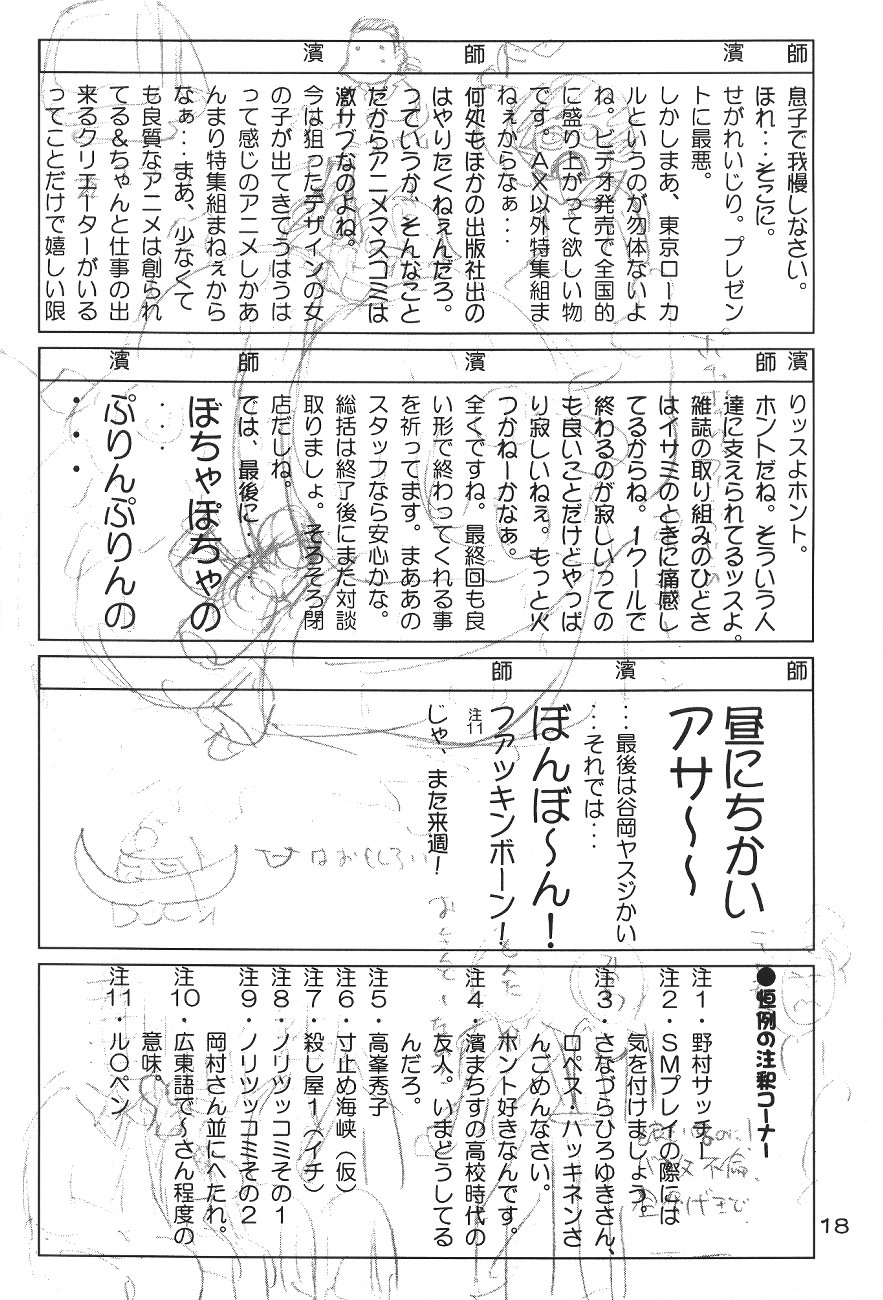 師
息子で我慢しなさい。
濱
ほれ・・・そこに。
せがれいじり。プレゼン
トに最悪。
しかしまあ、東京ローカ
ルというのが勿体ないよ
ね。ビデオ発売で全国的
に盛り上がって欲しい物
です。AX以外特集組ま
ねぇからなぁ・・・
師
何処もほかの出版社出の
はやりたくねぇんだろ。
っていうか、そんなこと
だからアニメマスコミは
激サブなのよね。
濱
今は狙ったデザインの女
の子が出てきてうはうは
って感じのアニメしかあ
んまり特集組まねぇから
なぁ・・・まあ、少なくて
も良質なアニメは創られ
てる&ちゃんと仕事の出
来るクリエーターがいる
ってことだけで嬉しい限
濱
りッスよホント。
師
ホントだね。そういう人
達に支えられてるッスよ。
雑誌の取り組みのひどさ
はイサミのときに痛感し
てるからね。1クールで
終わるのが寂しいっての
も良いことだけどやっぱ
り寂しいねぇ。もっと火
つかねーかなあ。
濱
全くですね。最終回も良
い形で終わってくれる事
を祈ってます。まああの
スタッフなら安心かな。
総括は終了後にまた対談
取りましょ。そろそろ閉
店だしね。
師
では、最後に・・・
ぼちゃぽちゃの
・・・
濱
ぷりんぷりんの
・・・
師
昼にちかい
アサ〜〜
濱
・・・最後は谷岡ヤスジかい
・・・それでは・・・
ぼんぼ〜ん!
師
ファッキンボーン!
注11
じゃ、また来週!
●恒例の注釈コーナー
注1・野村サッチー
注2・SMプレイの際には
気を付けましょう。
注3・さなづらひろゆきさん、
ロペス・ハッキネンさ
んごめんなさい。
ホント好きなんです。
注4・濱まちすの高校時代の
友人。いまどうしてる
んだろ。
注5・高峯秀子
注6・寸止め海峡(仮)
注7・殺し屋1(イチ)
注8・ノリツッコミその1
注9・ノリツッコミその2
岡村さん並にへたれ。
注10・広東語で〜さん程度の
意味。
注11・ル〇ペン
はおもしろい
18